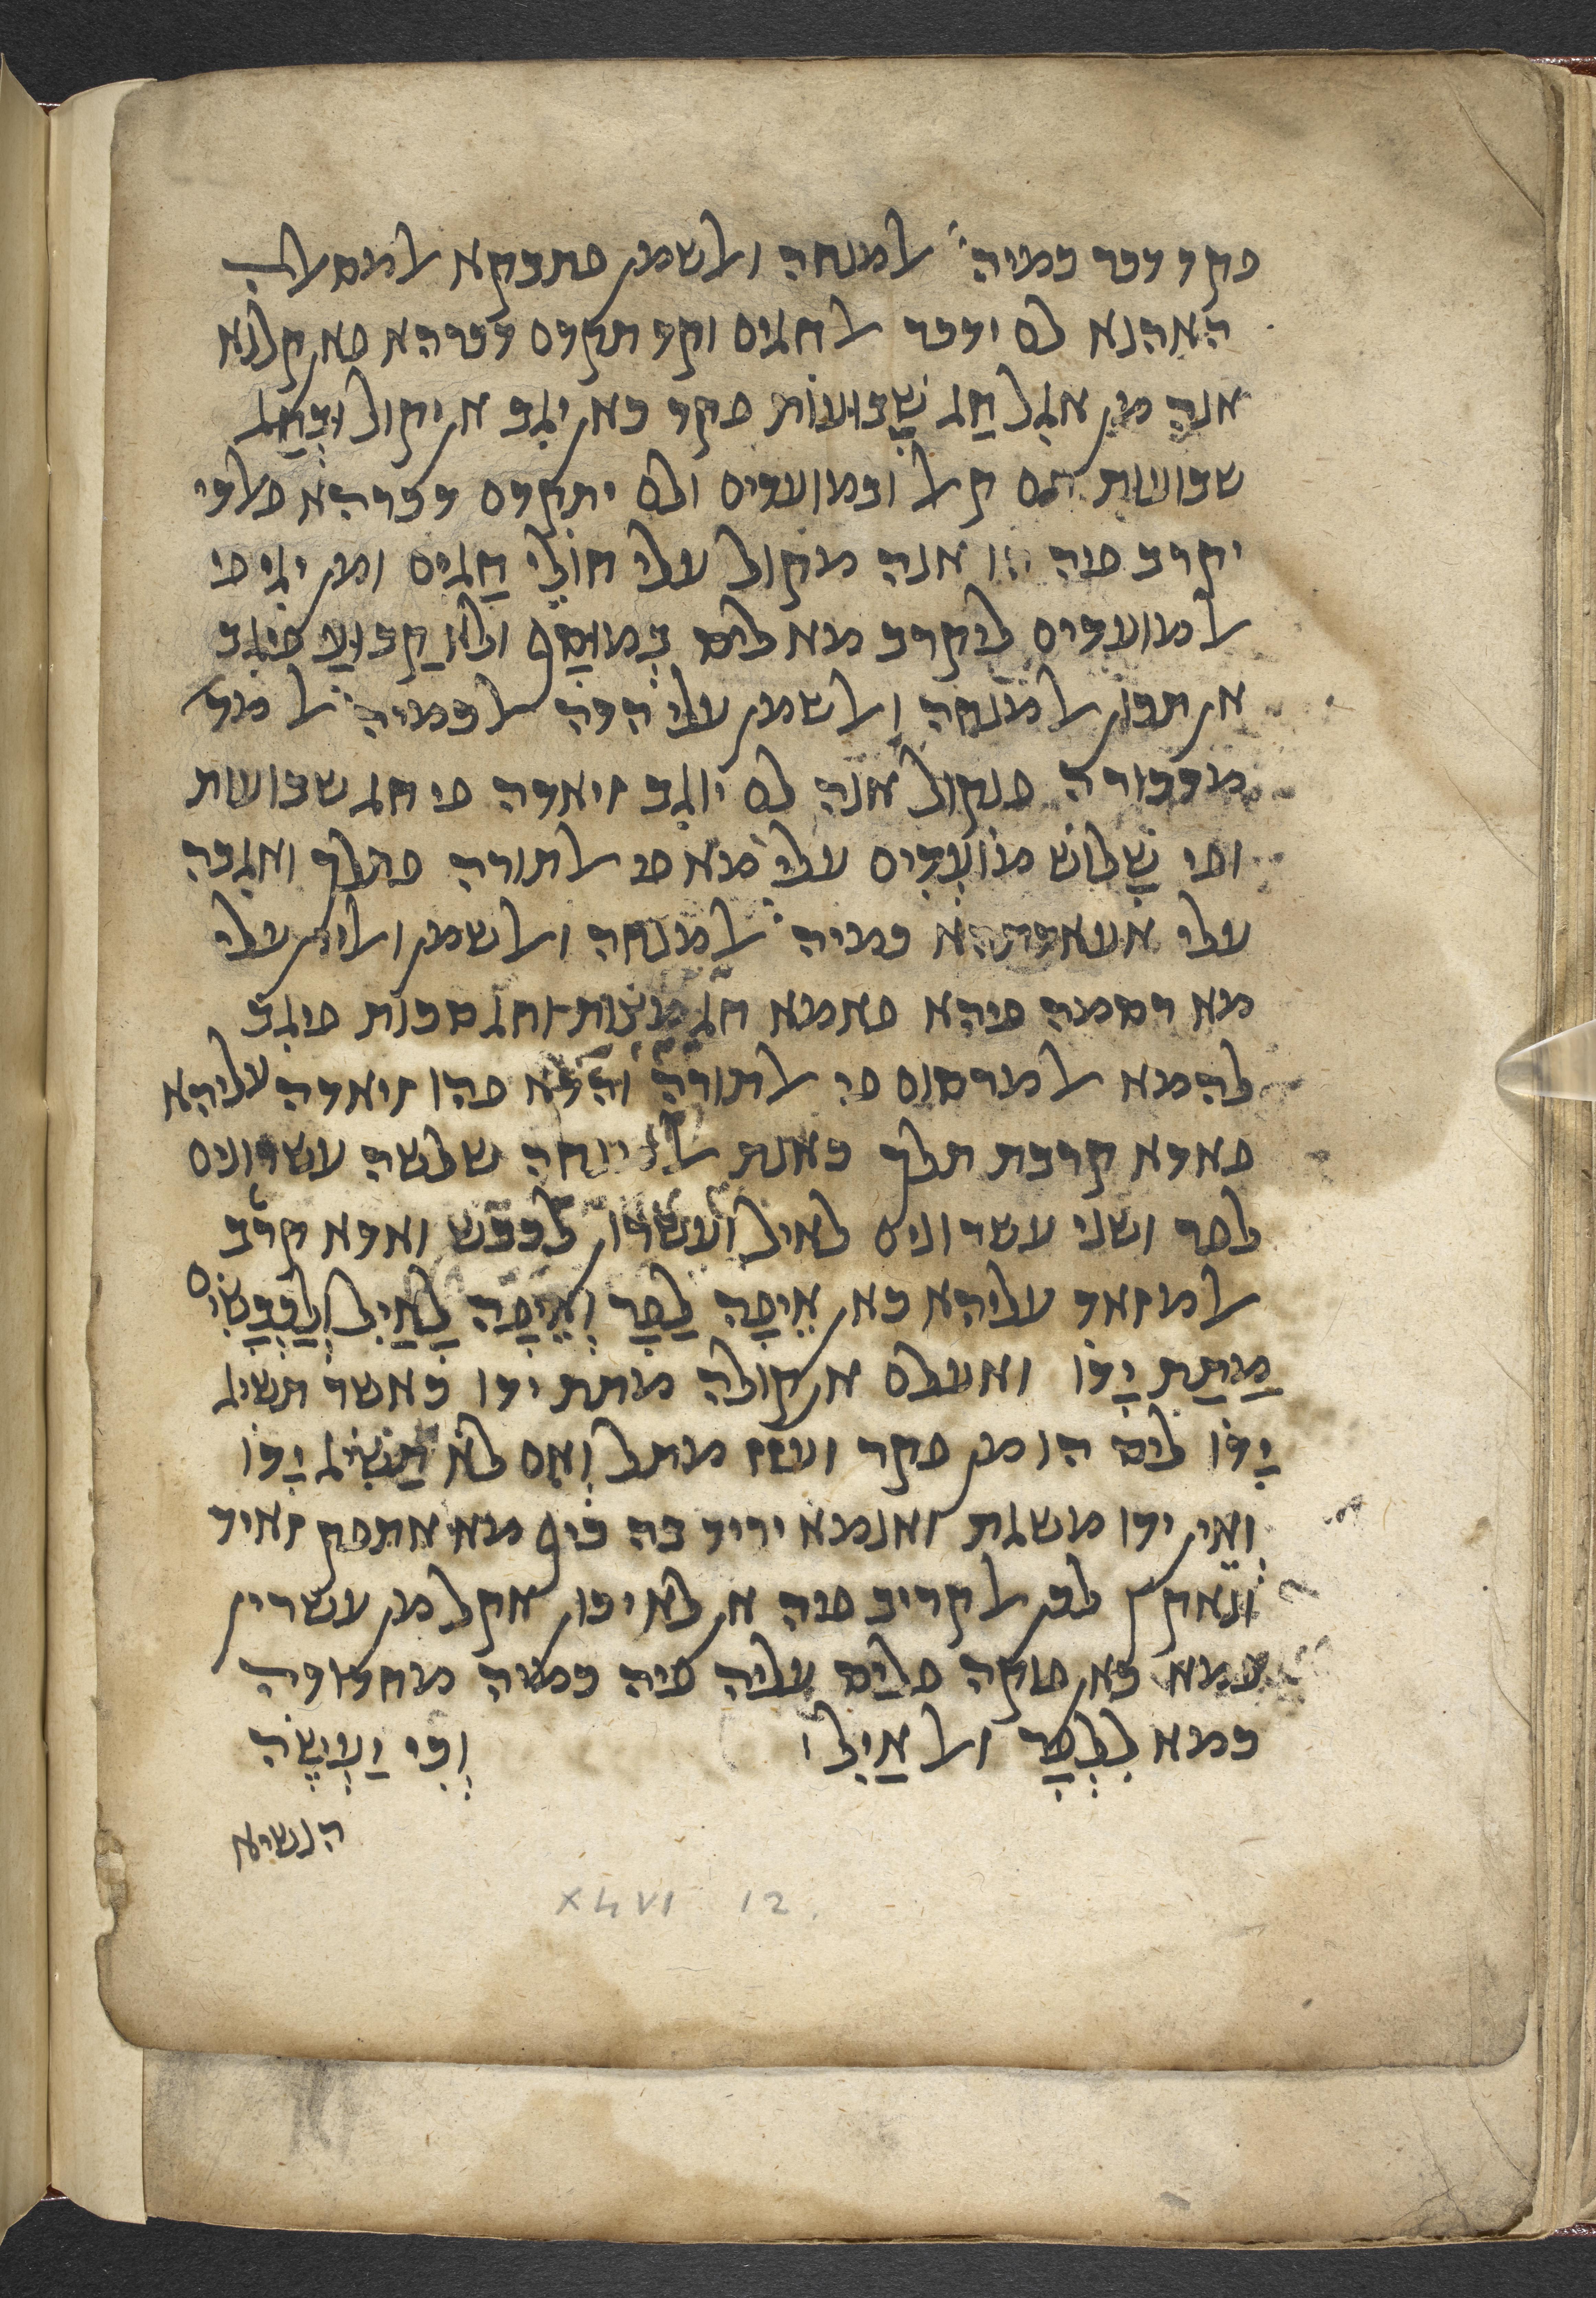 פקד דכר כמיה̈ אלמנחה ואלשמן פתבקא אלמסאלה
האהנא לם ידכר אלחגים וקד תקדם דכרהא פאן קלנא
אנה מן אגל חַג שָׁבוּעוֹת פקד כאן יגב אן יקול וּבְחַג
שבועות תם קאל ובמועדים ולם יתקדם דכרהא פאלדי
יקרב פיה אנה מקול עלי חולי חַגים ומן יגי פי
אלמועדים ליקרב מא ליס בְמוּסַף ולא קַבוּעַ פיגב
אן תכון אלמנחה ואלשמן עלי הדה אלכמיה אלמד
מדכורה פנקול אנה לם יוגב זיאדה פי חג שבועות
ופי שָׁלוֹשׁ מוֹעֲדִים עלי מא פי אלתורה פתלך ואגבה
עלי אעאדתהא כמיה̈ אלמנחה ואלשמן ואליין עלי
מא רסמה פיהא פאמא חג מַצוֹת וחג סכות פיגב
להמא אלמרסום פי אלתורה והדא פהו זיאדה עליהא
פאדא קרבת תלך כאנת אלמנחה שלשה עשרונים
לפר ושני עשרונים לאיל ועשרון לכבש ואדא קרב
אלמזאד עליהא כאן אֵיפָה לַפָר וְאֵיפָה לָאַיִל וְלַכְבָשִׂים
מַתַת יָדוֹ ואעלם אן קולה מתת ידו כאשר תשיג
יָדוֹ ליס הו מן פקר ועגז מתל וְאִם לא תַשִׂיג יָדוֹ
וְאֵין ידו משגת ואנמא יריד בה כיף מא אתפק זאיד
ונאקץ לכן אלקריב פיה אן לא יכון אקל מן עשרון
ומא כאן פוקה פליס עליה פיה כמיה מחדודה
כמא לִלְפָר ואלאַיִל׃ וְכִי יַעֲשֶׂה
הנשיא
XLVI 12.